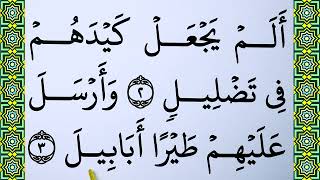 أَلَمْ يَجْعَلْ كَيْدَهُمْ
فِى تَضْلِيلٍ ٢ وَأَرْسَلَ
عَلَيْهِمْ طَيْرًا أَبَابِيلَ ٣